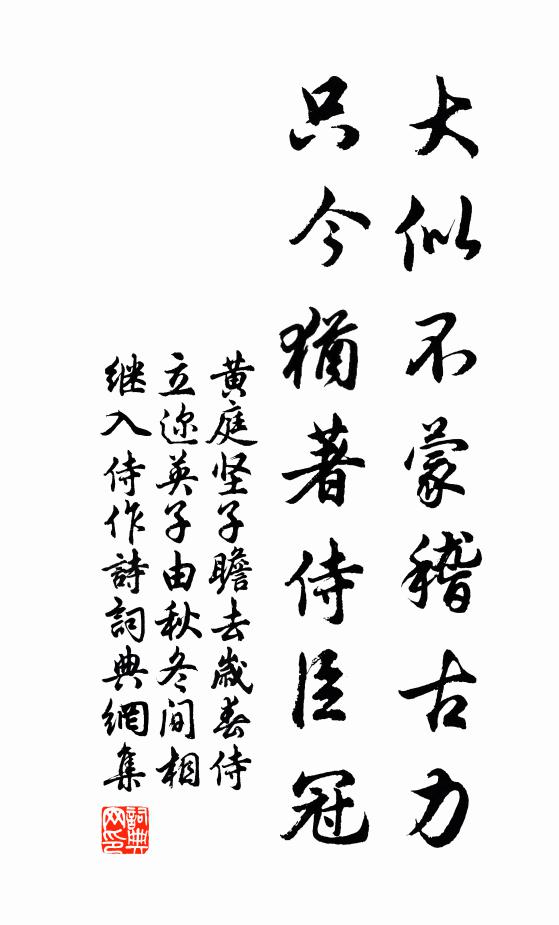 大似不蒙稽古力
只今猶著侍臣冠
黄庭坚子瞻去歲春侍
立迩英子由秋冬间相
继入侍作詩詞典網集
詞典
网印